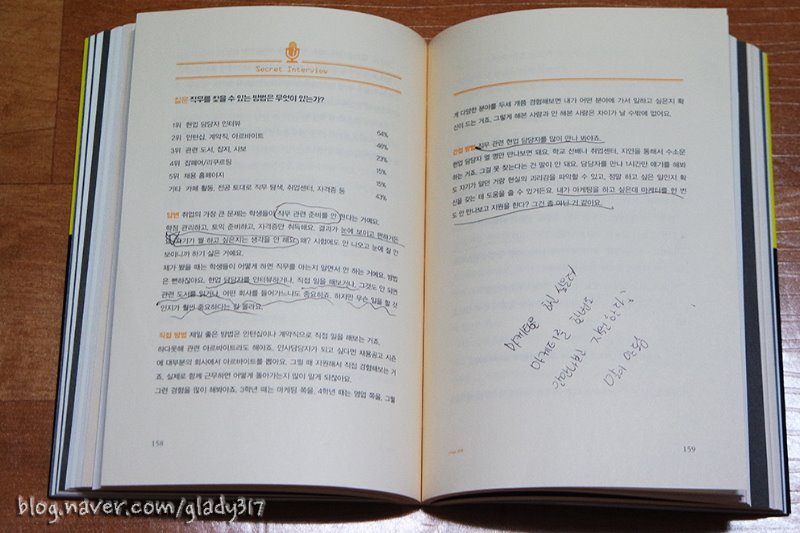 Secret Interview
질문 직무를 찾을 수 있는 방법은 무엇이 있는가?
1위 현업 담당자 인터뷰 64%
2위 인턴십, 계약직, 아르바이트 46%
3위 관련 도서, 잡지, 사보 23%
4위 잡페어/리쿠르팅 15%
5위 채용 홈페이지 15%
기타 카페 활동, 전공 토대로 직무 탐색, 취업센터, 자격증 등 43%
답변 취업의 가장 큰 문제는 학생들이 직무 관련 준비를 안 한다는 거예요.
학점 관리하고, 토익 준비하고, 자격증만 취득해요. 결과가 눈에 보이고 편하거든
요. 자기가 뭘 하고 싶은지는 생각을 안 해요. 왜? 시험에도 안 나오고 눈에 잘 안
보이니까 하기 싫은 거예요.
제가 봤을 때는 학생들이 어떻게 하면 직무를 아는지 알면서 안 하는 거예요. 방법
은 뻔하잖아요. 현업 담당자를 인터뷰하거나, 직접 일을 해보거나, 그것도 안 되면
관련 도서를 읽거나. 어떤 회사를 들어가느냐도 중요하죠. 하지만 무슨 일을 할 것
인지가 훨씬 중요하다는 걸 몰라요.
직접 방법 제일 좋은 방법은 인턴십이나 계약직으로 직접 일을 해보는 거죠.
하다못해 관련 아르바이트라도 해야죠. 인사담당자가 되고 싶다면 채용공고 시즌
에 대부분의 회사에서 아르바이트를 뽑아요. 그럴 때 지원해서 직접 경험해보는 거
죠. 실제로 함께 근무하면 어떻게 돌아가는지 많이 알게 되잖아요.
그런 경험을 많이 해봐야죠. 3학년 때는 마케팅 쪽을, 4학년 때는 영업 쪽을, 그렇
158
게 다양한 분야를 두세 개쯤 경험해보면 내가 어떤 분야에 가서 일하고 싶은지 확
신이 드는 거죠. 그렇게 해본 사람과 안 해본 사람은 차이가 날 수밖에 없어요.
간접 방법 직무 관련 현업 담당자를 많이 만나 봐야죠.
현업 담당자 열 명만 만나보면 돼요. 학교 선배나 취업센터, 지인을 통해서 수소문
하면 되거든요. 그걸 못 찾는다는 건 말이 안 돼요. 담당자를 만나 1시간만 얘기를 해봐
도 자기가 알던 거랑 현실의 괴리감을 파악할 수 있고, 정말 하고 싶은 일인지 확
신을 갖는 데 도움을 줄 수 있거든요. 내가 마케팅을 하고 싶은데 마케터를 한 번
도 안 만나보고 지원을 한다? 그건 좀 아닌 것 같아요.
마케팅을 하고 싶은데
마케터를 한번도
안만나보고 지원한다?
159
blog.naver.com/glady317